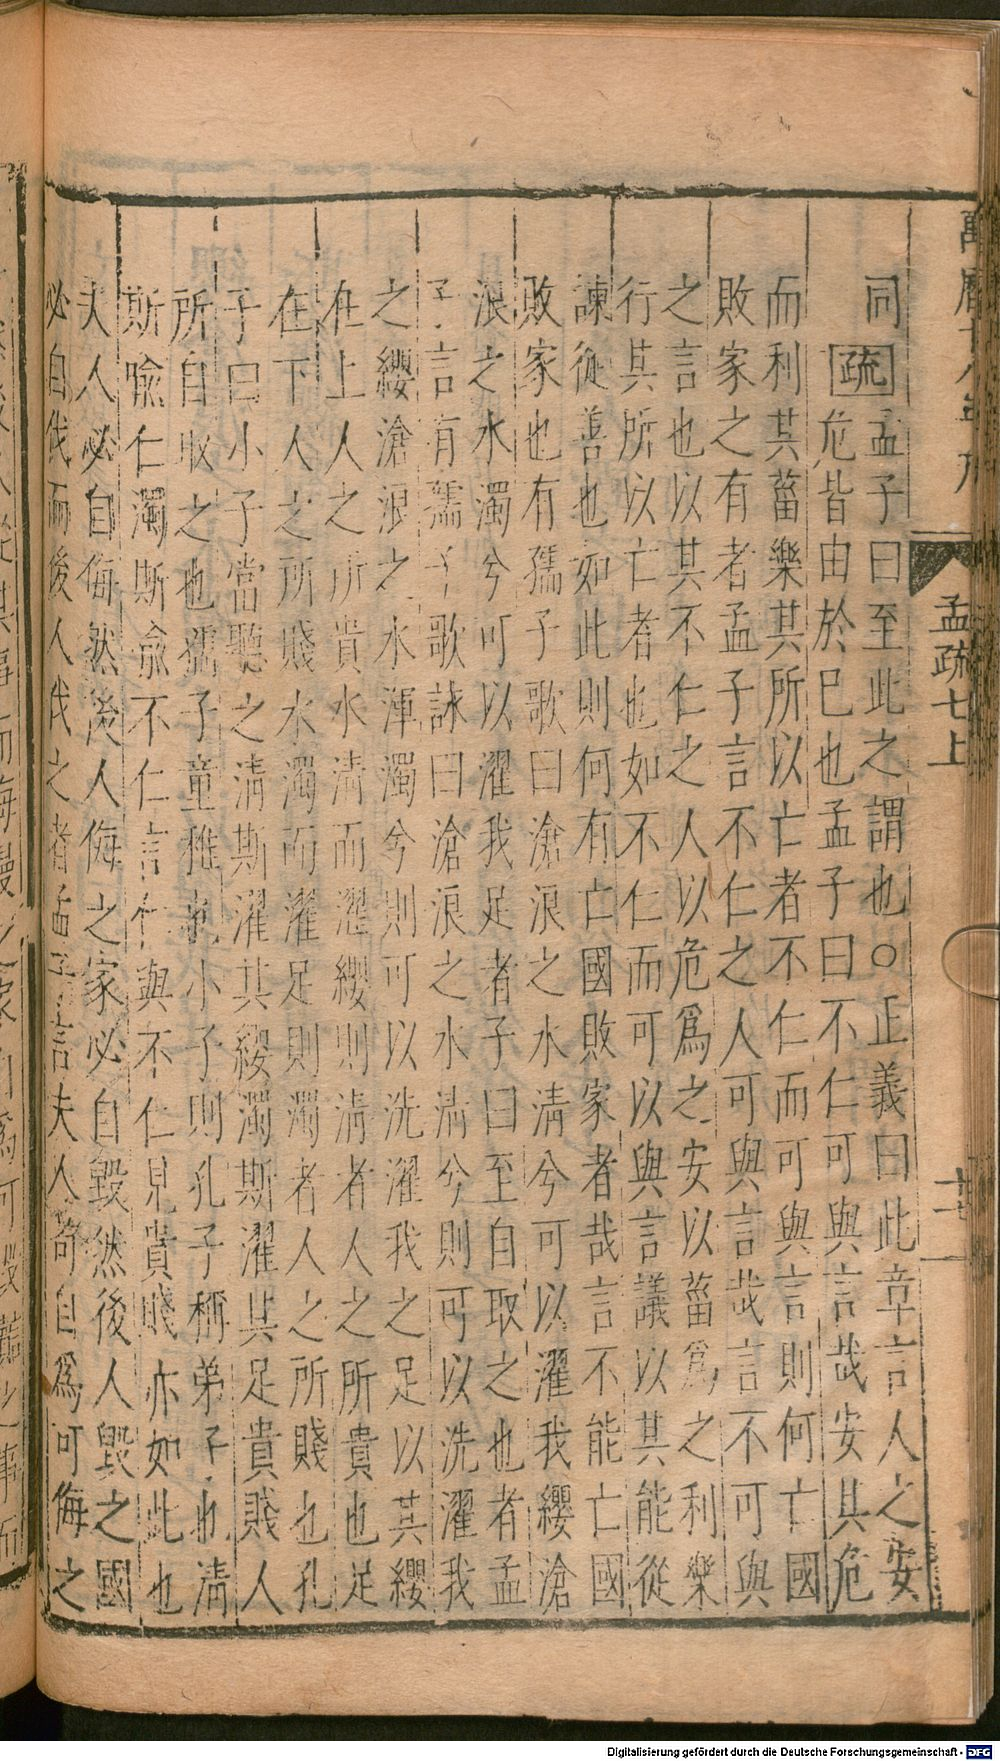 萬曆十八年刊
孟疏七上
十一
同疏孟子曰至此之謂也○正義曰此章言人之安
危皆由於巳也孟子曰不仁可與言哉安其危
而利其菑樂其所以亡者不仁而可與言則何亡國
敗家之有者孟子言不仁之人可與言哉言不可與
之言也以其不仁之人以危爲之安以菑爲之利樂
行其所以亡者也如不仁而可以與言議以其能從
諫從善也如此則何有亡國敗家者哉言不能亡國
敗家也有孺子歌曰滄浪之水清兮可以濯我纓滄
浪之水濁兮可以濯我足者子曰至自取之也者孟
子言有孺子歌詠曰滄浪之水清兮則可以洗濯我
之纓滄浪之水渾濁兮則可以洗濯我之足以其纓
在上人之所貴水清而濯纓則清者人之所貴也足
在下人之所賤水濁而濯足則濁者人之所賤也孔
子曰小子當聽之清斯濯其纓濁斯濯其足貴賤人
所自取之也孺子童稚也小子則孔子稱弟子也清
斯喻仁濁斯喻不仁言仁與不仁見貴賤亦如此也
夫人必自侮然後人侮之家必自毀然後人毀之國
必自伐而後人伐之者孟子言夫人苟自爲可侮之
Digitalisierung gefördert durch die Deutsche Forschungsgemeinschaft - DFG